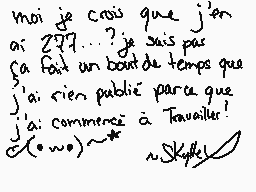 moi je crois que j'en
ai 277...? je sais pas
ça fait un bout de temps que
j'ai rien publié parce que
j'ai commencé à Travailler!
d(•w•)~*
~Skylle